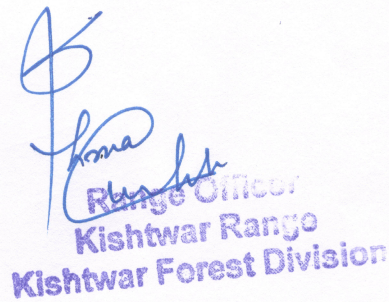 Range Officer
Kishtwar Rango
Kishtwar Forest Division